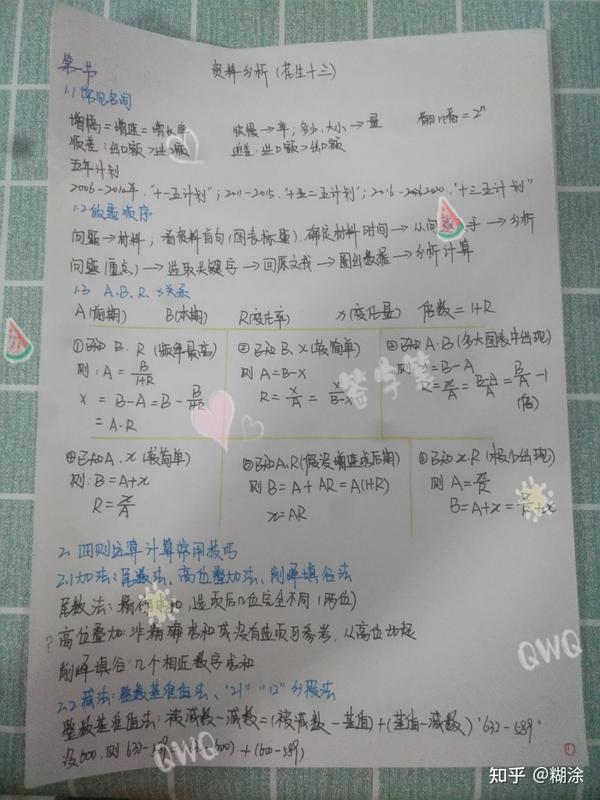 第一节
资料分析(花生十三)
1.1 常见名词
增幅=增速=增长率 快慢→率;多少、大小→量 翻n番=2ⁿ
顺差:出口额>进口额 逆差:进口额>出口额
五年计划
2006-2010年,"十一五计划";2011-2015,"十二五计划";2016-2020,"十三五计划"
1.2 做题顺序
问题→材料;看资料首句(图表标题),确定材料时间→从问题入手→分析
问题(重点)→选取关键字→回原文找→圈出数据→分析计算
1.3 A、B、R、x关系
A(前期) B(本期) R(变化率) x(变化量) 倍数=1+R
①已知B、R(频率最高)
则:A=B/(1+R)
x=B-A=B-B/(1+R)
=A·R
②已知B、x(较简单)
则A=B-x
R=x/A=x/(B-x)
③已知A、B(多大图表中出现)
则x=B-A
R=x/A=(B-A)/A=B/A-1
(倍)
④已知A、x(较简单)
则:B=A+x
R=x/A
⑤已知A、R(假设增速求后期)
则B=A+AR=A(1+R)
x=AR
⑥已知x、R(极少出现)
则A=x/R
B=A+x=x/R+x
2. 四则运算计算常用技巧
2.1 加法:尾数法、高位叠加法、削峰填谷法
尾数法:精确求和,选项后几位完全不同(两位)
? 高位叠加:非精确求和或没有选项可参考,从高位加起
削峰填谷:几个相近数字求和
2.2 减法:整数基准值法、"21""12"分段法
整数基准值法:被减数-减数=(被减数-基值)+(基值-减数)"632-589"
设600,则632-589=(632-600)+(600-589)
①
答学笔
QWQ
QWQ
QWQ
知乎 @糊涂